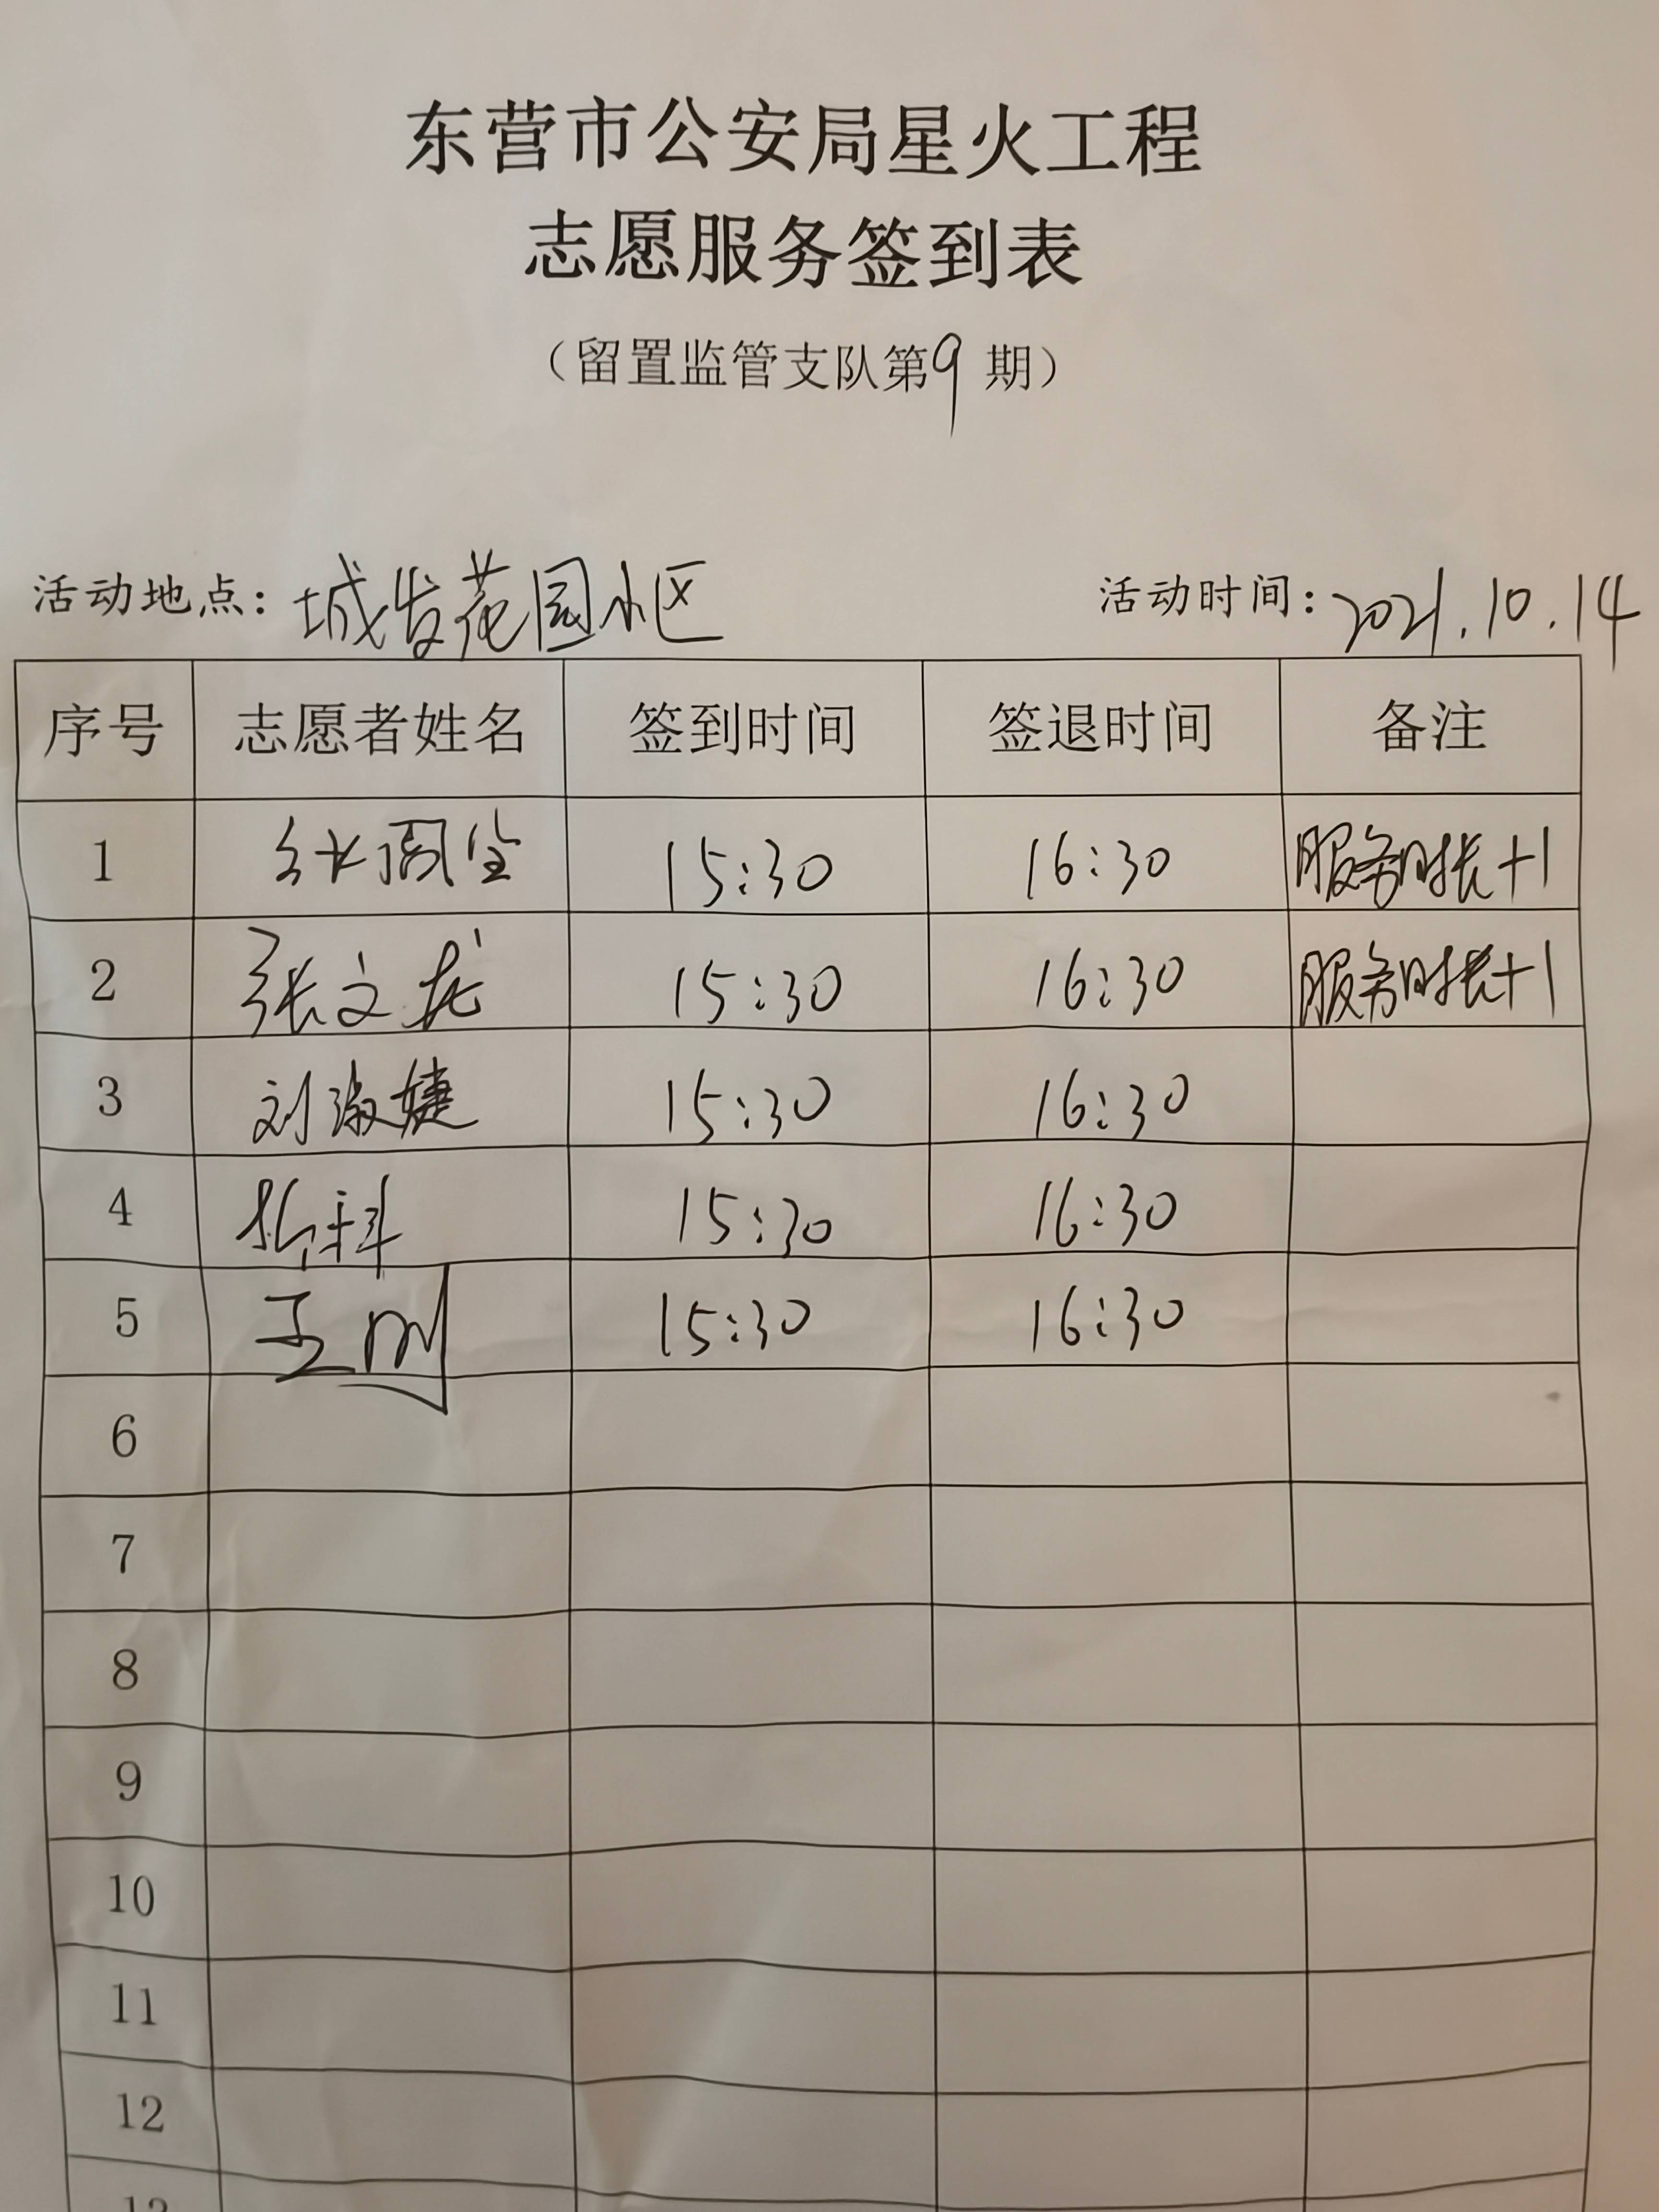 东营市公安局星火工程
志愿服务签到表
（留置监管支队第9期）
活动地点：城发花园小区 活动时间：2021.10.14
序号 志愿者姓名 签到时间 签退时间 备注
1 15:30 16:30 服务时长+1
2 张文龙 15:30 16:30 服务时长+1
3 刘淑婕 15:30 16:30
4 15:30 16:30
5 王刚 15:30 16:30
6
7
8
9
10
11
12
13